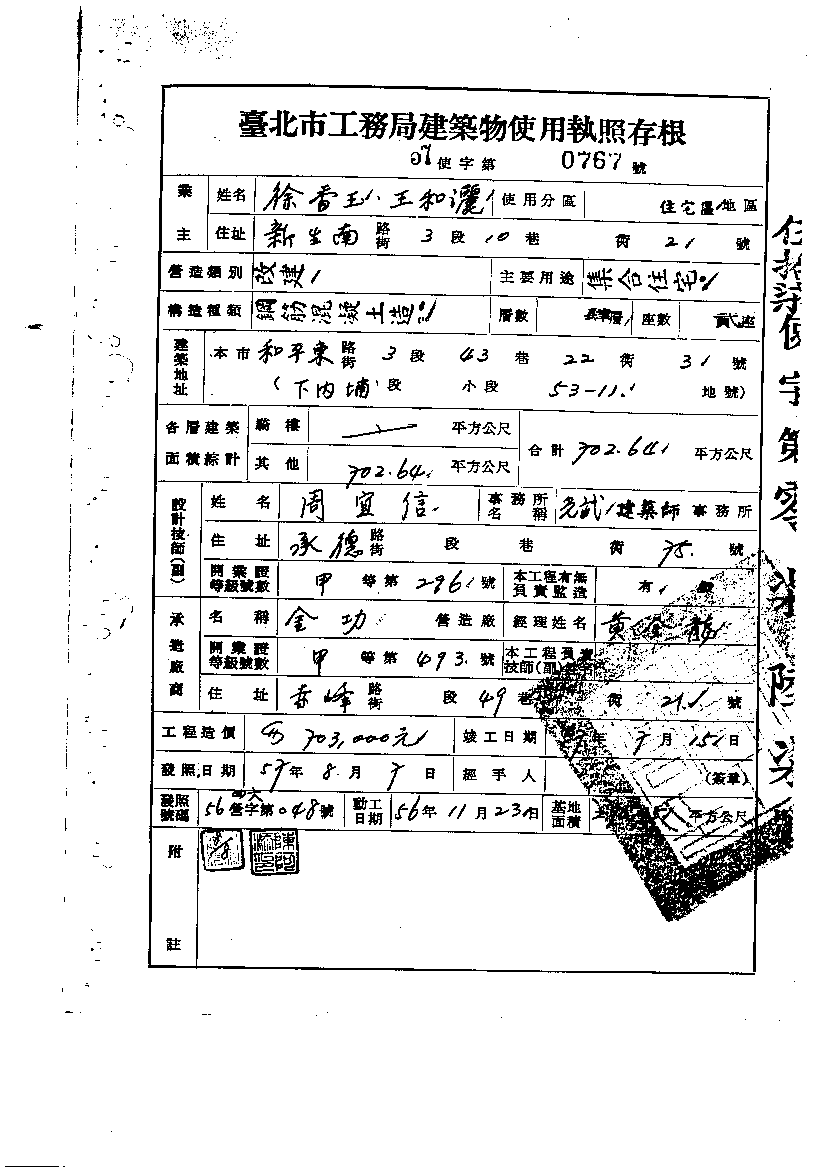 臺北市工務局建築物使用執照存根
使字第 0767 號
業主 姓名 徐香玉、王和灑 使用分區 住宅區 地區
住址 新生南 路街 3 段 10 巷 街 21 號
營造類別 改建 主要用途 集合住宅
構造種類 鋼筋混凝土造 層數 層 座數 貳座
建築地址 本市 和平東 路街 3 段 43 巷 22 街 31 號
(下內埔 段 小段 53-11 地號)
各層建築面積綜計 騎樓 平方公尺 合計 702.64 平方公尺
其他 702.64 平方公尺
設計技師(副) 姓名 周宜信 事務所名稱 建築師 事務所
住址 承德 路街 段 巷 街 75 號
開業證等級號數 甲 等第 2961 號 本工程有無負責監造 有
承造廠商 名稱 金功 營造廠 經理姓名 黃
開業證等級號數 甲 等第 493 號 本工程負責技師(副)
住址 赤峰 路街 段 49 巷 街 21 號
工程造價 703,000元 竣工日期 年 7 月 15 日
發照日期 57 年 8 月 7 日 經手人 (簽章)
發照號碼 56 營字第 048 號 動工日期 56 年 11 月 23 日 基地面積 平方公尺
附註